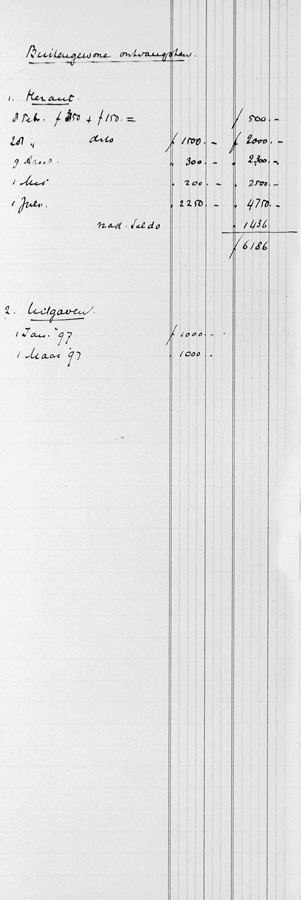 Buitengewone ontvangsten.
1. Keraut.
8 Feb. ƒ 350 + ƒ 150. = ƒ 500.-
201 " dito ƒ 1500.- ƒ 2000.-
9 " 300.- " 2300.-
1 Mei " 200.- " 2500.-
1 Juni. " 2250.- " 4750.-
nad. Saldo " 1436
ƒ 6186
2. Uitgaven.
1 Jan. '97 ƒ 1000.-
1 Maart '97 " 1000.-